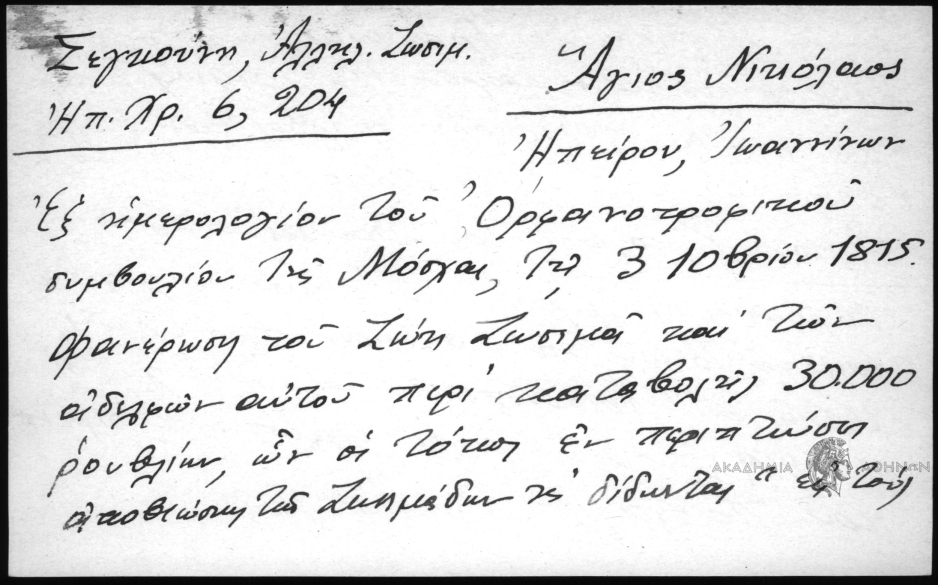 Σεγκούνη, Ἀλληλ. Ζωσιμ.
Ἠπ. Χρ. 6, 204
Ἅγιος Νικόλαος
Ἠπείρου, Ἰωαννίνων
Ἐξ ἡμερολογίου τοῦ Ὀρφανοτροφικοῦ
συμβουλίου τῆς Μόσχας, τῇ 3 10βρίου 1815.
Φανέρωση τοῦ Ζώη Ζωσιμᾶ καὶ τῶν
ἀδελφῶν αὐτοῦ περὶ καταβολῆς 30.000
ρουβλίων, ὧν οἱ τόκοι ἐν περιπτώσει
ἀποβιώσεως τῶν Ζωσιμάδων νὰ δίδωνται "εἰς τοὺς
ΑΚΑΔΗΜΙΑ ΑΘΗΝΩΝ